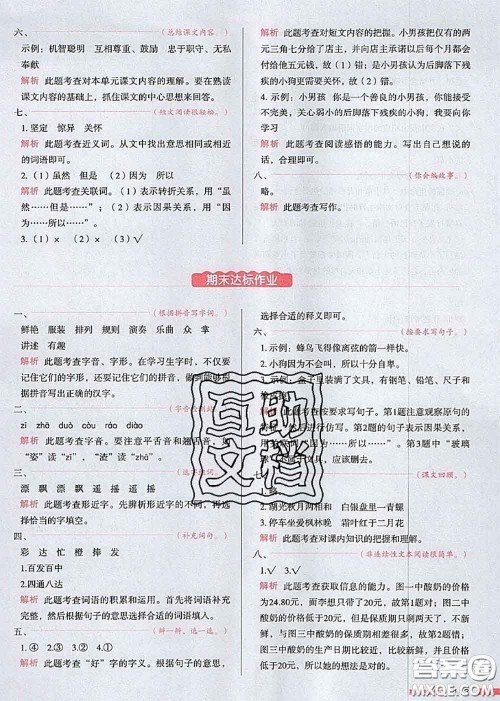 六、（总结课文内容。）
示例：机智聪明 互相尊重、鼓励 忠于职守、无私
奉献
解析 此题考查对本单元课文内容的理解。要在熟读
课文内容的基础上，抓住课文的中心思想来回答。
七、（短文阅读很轻松。）
1. 坚定 惊异 关怀
解析 此题考查近义词。从文中找出意思相同或相近
的词语即可。
2.（1）虽然 但是 （2）因为 所以
解析 此题考查关联词。（1）表示转折关系，用“虽
然……但是……”；（2）表示因果关系，用“因
为……所以……”。
3.（1）× （2）× （3）√
解析 此题考查对短文内容的把握。小男孩把仅有的两
元三角七分给了店主，并向店主承诺以后每个月都
会付给他五元钱，故（1）错；是小狗的后脚落下残
疾的小狗更需要关爱，故（2）错。
4. 示例：小男孩 你是一个善良的小男孩，你能接
受不完美，关心弱小的后脚落下残疾的小狗，我要向
你学习！
解析 此题考查阅读感悟的能力。写出自己想说的
话，合理即可。
八、（你会编故事。）
略。
解析 此题考查写作。
期末达标作业
一、（根据拼音写字词。）
鲜艳 服装 排列 规则 演奏 乐曲 众 掌
讲述 有趣
解析 此题考查字音、字形。在学习生字时，不仅要
记住它们的字形，还要记住它们的拼音，做到能够根
据拼音写出正确的汉字。
二、
zī zhā duó còu ráo diào
解析 此题考查字音。要注意平舌音和翘舌音，
如“姿”读“zī”，“渣”读“zhā”。
三、
漂 飘 飘 遥 摇 遥 摇
解析 此题考查形近字。先辨析形近字的不同，再选
择恰当的字填空。
四、（补充词句。）
彩 达 忙 橙 捧 发
1. 百发百中
2. 四通八达
解析 此题考查词语的积累和运用。首先将词语补充
完整，然后根据句子的意思选择合适的词语填入。
五、（辨一辨，选一选。）
1. ④ 2. ② 3. ① 4. ③
解析 此题考查“好”字的字义。可根据句子的意思
选择合适的释义即可。
六、（按要求写句子。）
1. 示例：蜂鸟飞得像离弦的箭一样快。
2. 小狗因为不会叫，所以十分自卑。
3. 示例：盒子里装满了文具，有钢笔、铅笔、尺子
和橡皮。
解析 此题考查按要求写句子。第1题注意观察原句的
特点，然后进行仿写。第2题的句子表示因果关系，
用“因为……所以……”。第3题中“玻璃
球”不属于文具，应删去。
七、（课文回顾。）
1. 略
2. 湖光秋月两相和 白银盘里一青螺
3. 停车坐爱枫林晚 霜叶红于二月花
解析 此题考查对课内知识的把握和理解。
八、（非连续性文本阅读很简单。）
1. √ 2. √
解析 此题考查获取信息的能力。图一中酸奶的价格
为24.80元，而李想只带了20元，故第1题对；图二中
酸奶的价格是20元，但是保质期只剩两天了，不新
鲜，也不划算，图三中酸奶的价格低于20元，图三
中酸奶的生产日期比较近，保质期还有十几天，且价
格低于20元，所以她的想法是对的。
互助
文档
答案圈
MXQE.COM